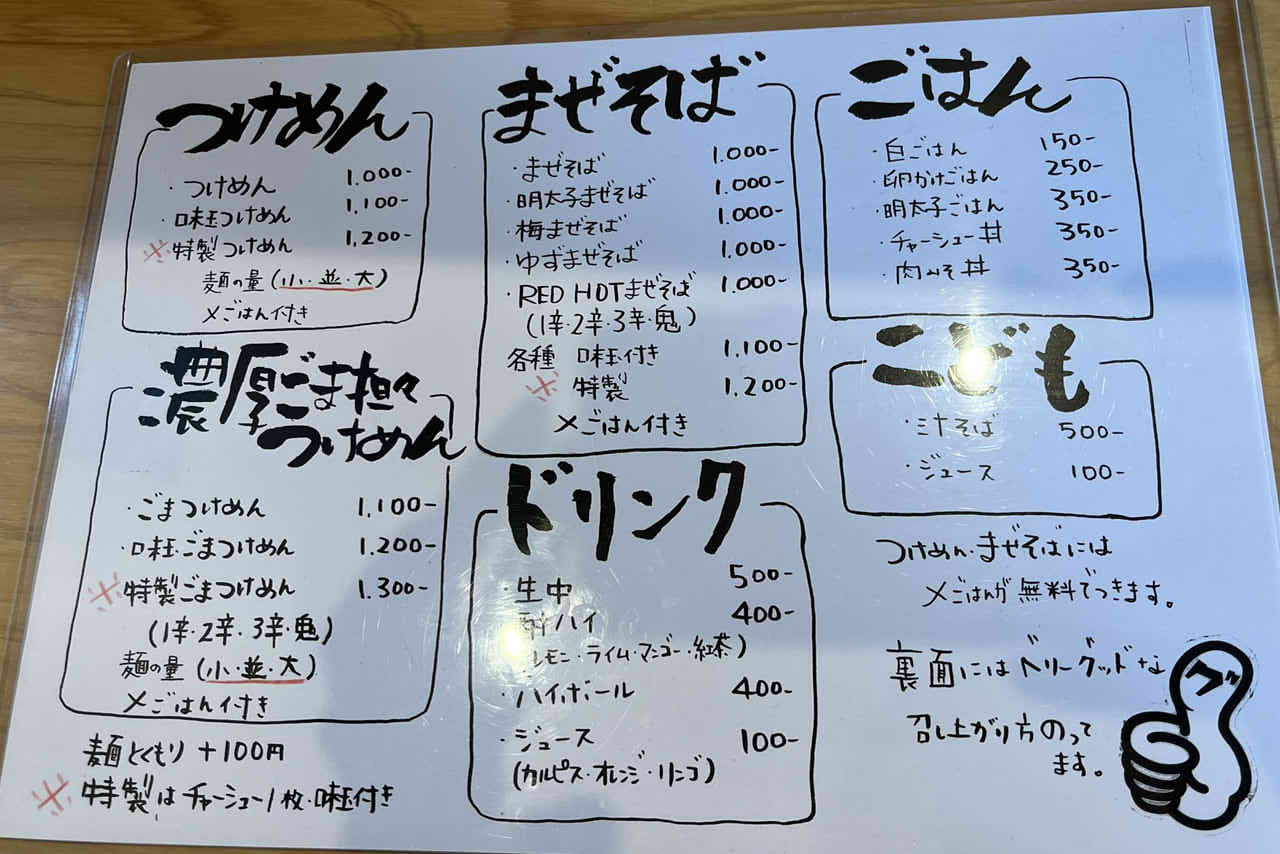 つけめん
・つけめん 1.000-
・味玉つけめん 1.100-
※特製つけめん 1.200-
麺の量(小・並・大)
〆ごはん付き
濃厚ごま担々
つけめん
・ごまつけめん 1.100-
・味玉ごまつけめん 1.200-
※特製ごまつけめん 1.300-
(1辛・2辛・3辛・鬼)
麺の量(小・並・大)
〆ごはん付き
麺とくもり +100円
※特製はチャーシュー1枚・味玉付き
まぜそば
・まぜそば 1.000-
・明太子まぜそば 1.000-
・梅まぜそば 1.000-
・ゆずまぜそば 1.000-
・RED HOTまぜそば 1.000-
(1辛・2辛・3辛・鬼)
各種 味玉付き 1.100-
※特製 1.200-
〆ごはん付き
ドリンク
・生中 500-
酎ハイ 400-
(レモン・ライム・マンゴー・紅茶)
・ハイボール 400-
・ジュース 100-
(カルピス・オレンジ・リンゴ)
ごはん
・白ごはん 150-
・卵かけごはん 250-
・明太子ごはん 350-
・チャーシュー丼 350-
・肉みそ丼 350-
こども
・汁そば 500-
・ジュース 100-
つけめん・まぜそばには
〆ごはんが無料でつきます。
裏面にはベリーグッドな
召し上がり方のって
ます。
グッ